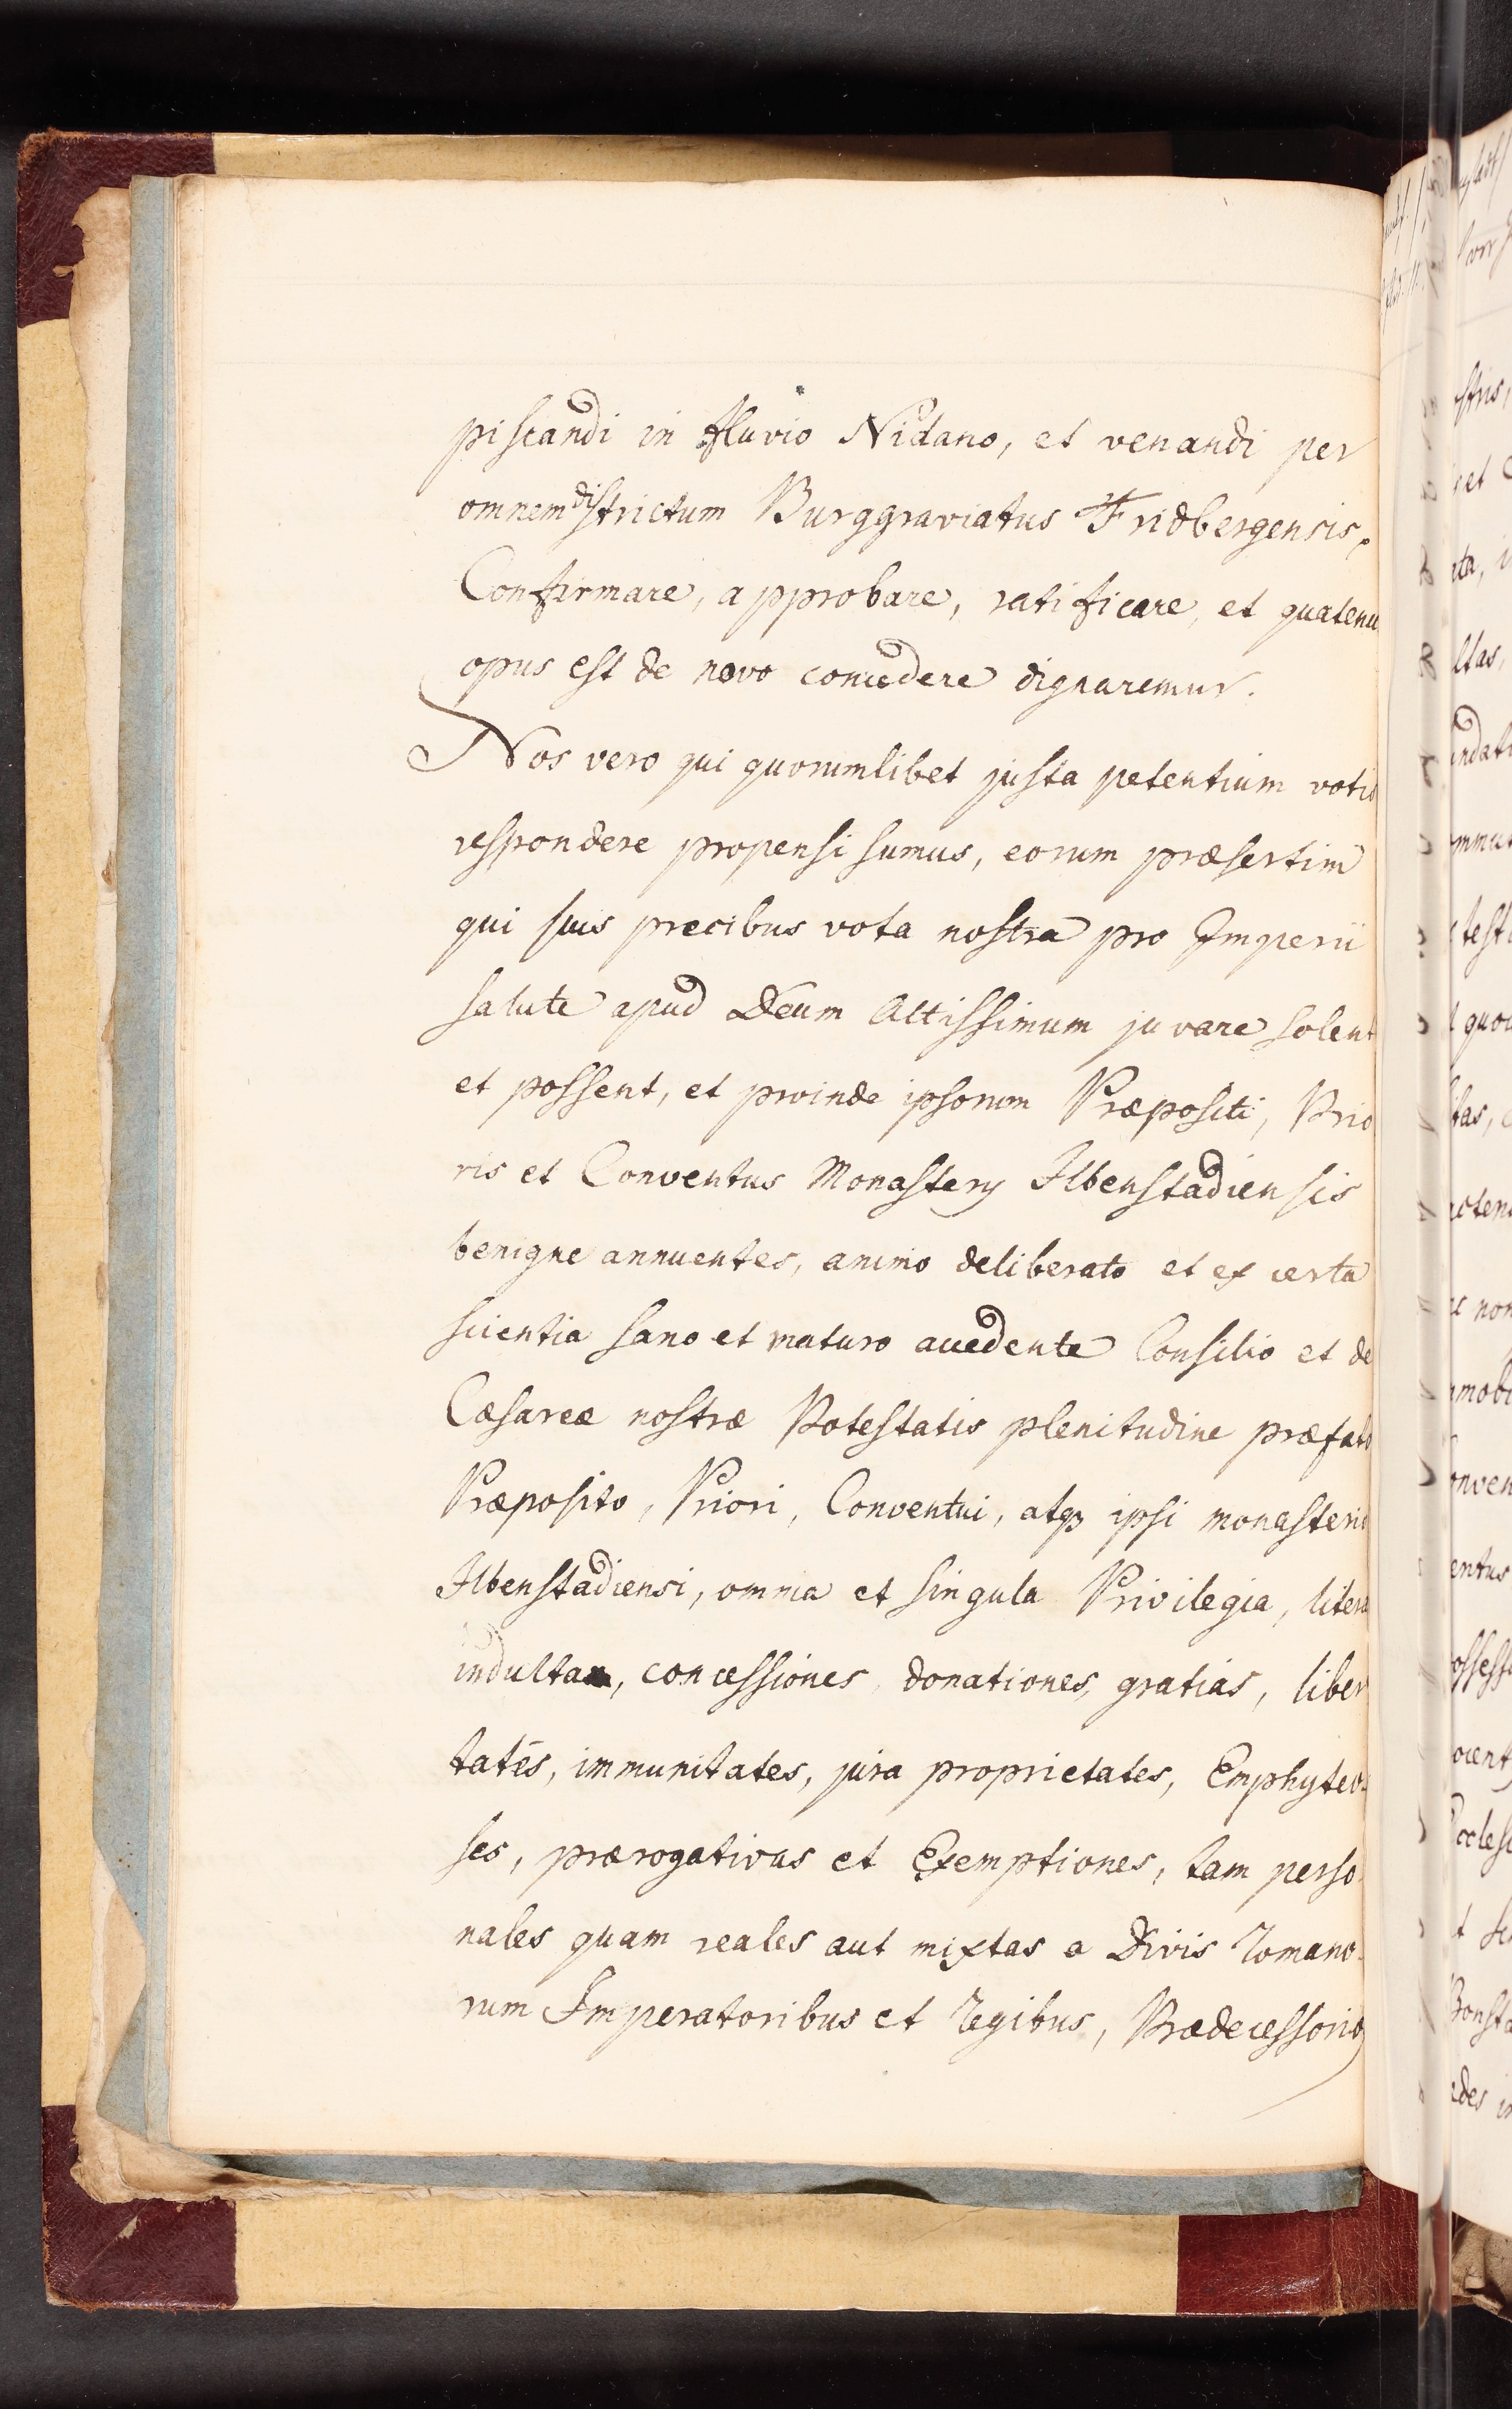 piscandi in fluvio Nidano, et venandi per
omnem districtum Burggraviatus Fridbergensis,
Confirmare, approbare, ratificare, et quatenu
opus est de novo concedere dignaremur.
Nos vero qui quorumlibet justa petentium votis
respondere propensi sumus, eorum præsertim
qui suis precibus vota nostra pro Imperii
salute apud Deum Altissimum juvare solent
et possent, et proinde ipsorum Præpositi, Prio
ris et Conventus Monasterij Ilbenstadiensis
benigne annuentes, animo deliberato et ex certa
scientia sano et maturo accedente Consilio et de
Cæsareæ nostræ Potestatis plenitudine præfato
Præposito, Priori, Conventui, atq3 ipsi monasterio
Ilbenstadiensi, omnia et singula Privilegia, litera
indulta, concessiones, donationes, gratias, liber
tates, immunitates, jura proprietates, Emphyteo-
ses, prærogativas et Exemptiones, tam perso
nales quam reales aut mixtas a Divis Romano-
rum Imperatoribus et Regibus, Prædecessorib9